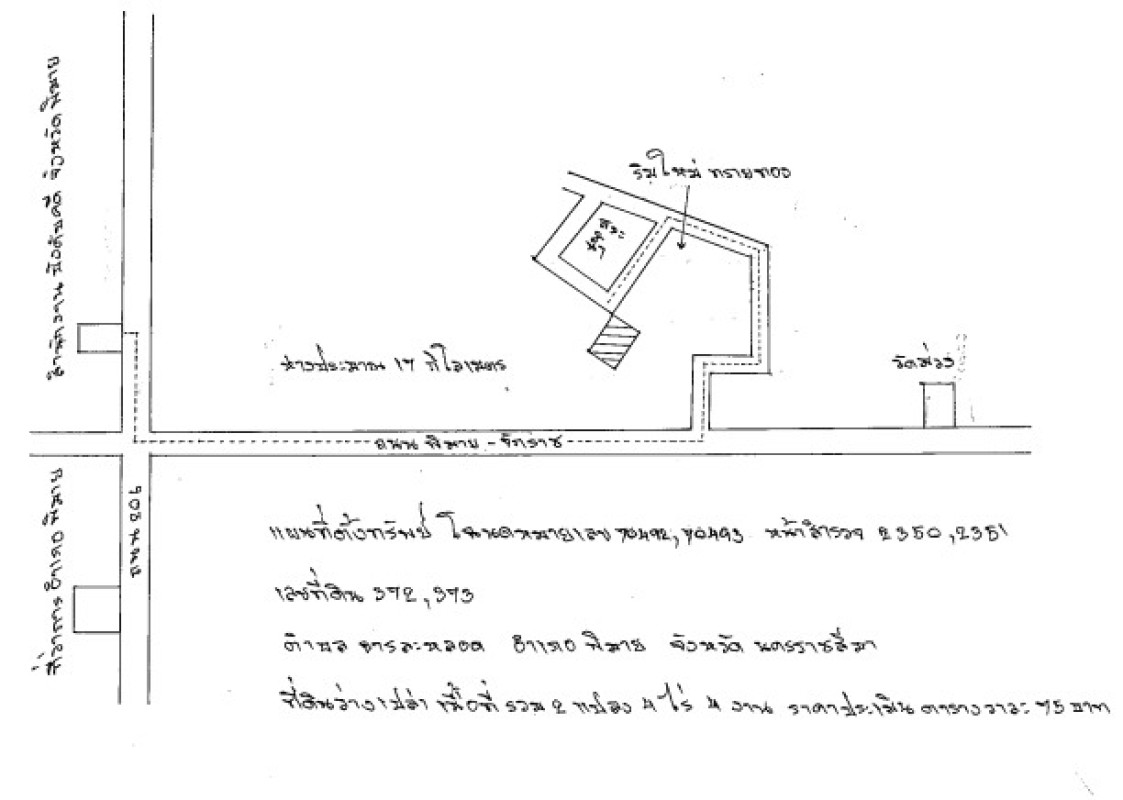 สำนักงาน บังคับคดี จังหวัด พิมาย
ริมใหม่ ทรายทอง
ห่างประมาณ 17 กิโลเมตร
วัดม่วง
ถนน พิมาย - จักราช
ถนน 206
ที่ว่าการ อำเภอ พิมาย
แผนที่ตั้งทรัพย์ โฉนดหมายเลข 70492,70493 หน้าสำรวจ 2350,2351
เลขที่ดิน 372,373
ตำบล ธารละหลอด อำเภอ พิมาย จังหวัด นครราชสีมา
ที่ดินว่างเปล่า เนื้อที่ รวม 2 แปลง 4 ไร่ 4 งาน ราคาประเมิน ตารางวาละ 75 บาท